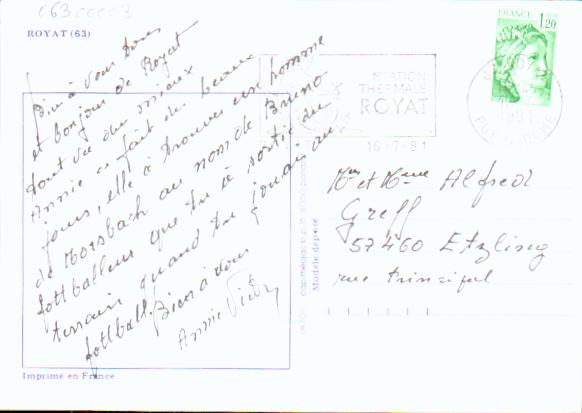 063
ROYAT (63)
FRANCE
1,20
STATION
THERMALE
ROYAT
16-7-81
PUY-DE-DOME
Bien à vous tous
et bonjour de Royat
tout va au mieux
Annie a fait de beaux
jours, elle à trouver un homme
de Morsbach au nom de Bruno
fottballeur que tu à sortie du
terrain quand tu jouais au
fottball. Bien à vous
Annie
Mr et Mme Alfred
Greff
57460 Etzling
rue Principal
Modèle déposé
Imprimé en France